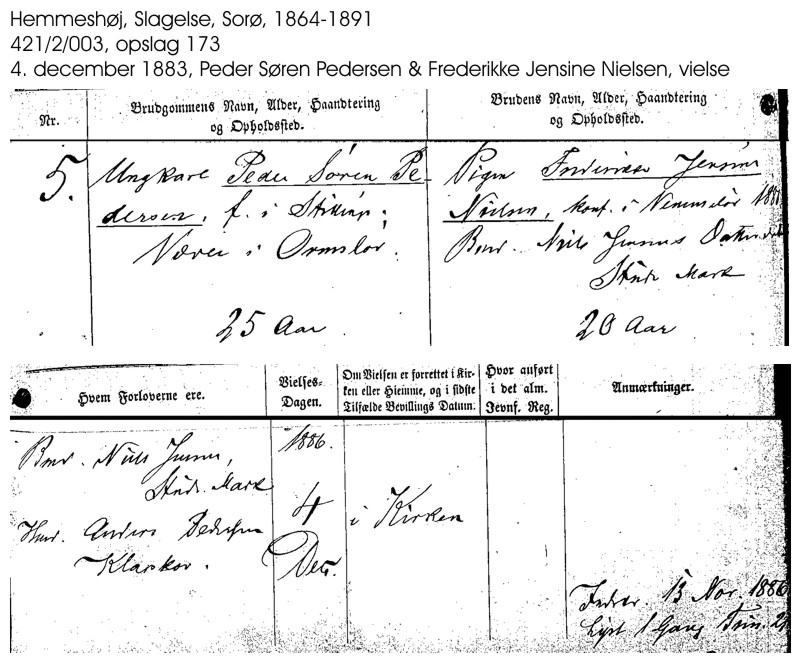 Hemmeshøj, Slagelse, Sorø, 1864-1891
421/2/003, opslag 173
4. december 1883, Peder Søren Pedersen & Frederikke Jensine Nielsen, vielse
Nr.
Brudgommens Navn, Alder, Haandtering
og Opholdssted.
Brudens Navn, Alder, Haandtering
og Opholdssted.
5.
Ungkarl Peder Søren Pe-
dersen, f. i
i Ormslev.
25 Aar
Pigen Frederikke Jensine
Nielsen, konf. i
Bmd. Niels Jensens Datter
Mark
20 Aar
Hvem Forloverne ere.
Vielses-
Dagen.
Om Vielsen er forrettet i Kir-
ken eller Hjemme, og i sidste
Tilfælde Bevillings Datum.
Hvor anført
i det alm.
Jevnf. Reg.
Anmærkninger.
Bmd. Niels Jensen,
Mark
Hmd. Anders Pedersen
1886.
4
Dec.
i Kirken
13 Nov. 1886
Lyst 1 Gang Trin.